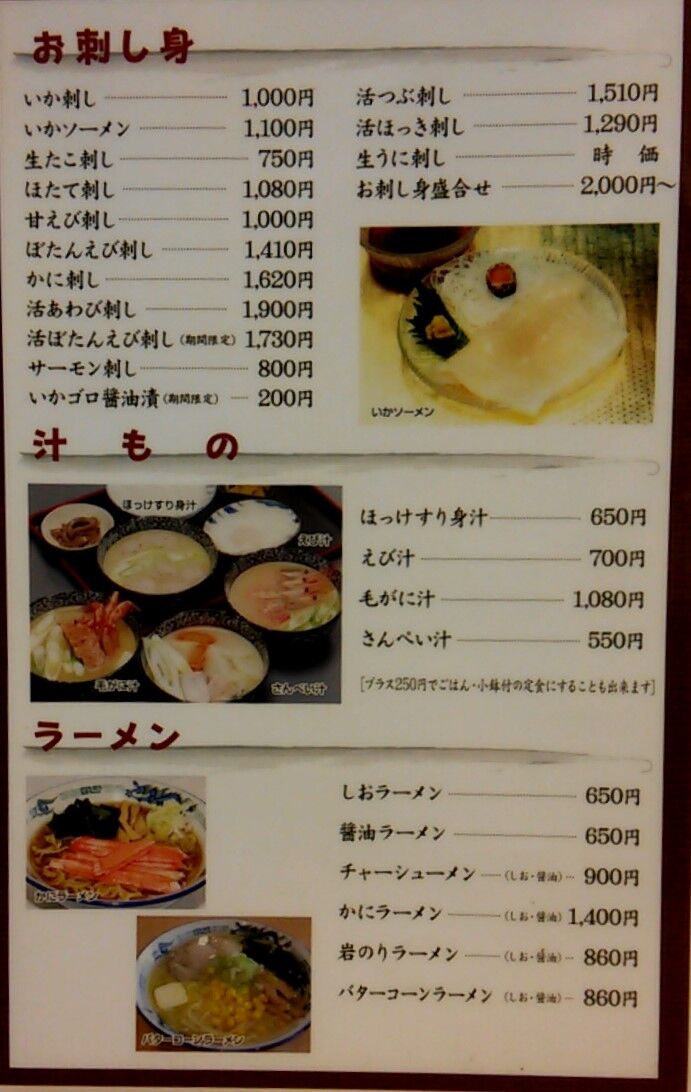 お刺し身
いか刺し 1,000円
いかソーメン 1,100円
生たこ刺し 750円
ほたて刺し 1,080円
甘えび刺し 1,000円
ぼたんえび刺し 1,410円
かに刺し 1,620円
活あわび刺し 1,900円
活ぼたんえび刺し(期間限定) 1,730円
サーモン刺し 800円
いかゴロ醤油漬(期間限定) 200円
活つぶ刺し 1,510円
活ほっき刺し 1,290円
生うに刺し 時価
お刺し身盛合せ 2,000円〜
いかソーメン
汁もの
ほっけすり身汁
えび汁
毛がに汁
さんぺい汁
ほっけすり身汁 650円
えび汁 700円
毛がに汁 1,080円
さんぺい汁 550円
[プラス250円でごはん・小鉢付の定食にすることも出来ます]
ラーメン
かにラーメン
バターコーンラーメン
しおラーメン 650円
醤油ラーメン 650円
チャーシューメン (しお・醤油) 900円
かにラーメン (しお・醤油) 1,400円
岩のりラーメン (しお・醤油) 860円
バターコーンラーメン (しお・醤油) 860円